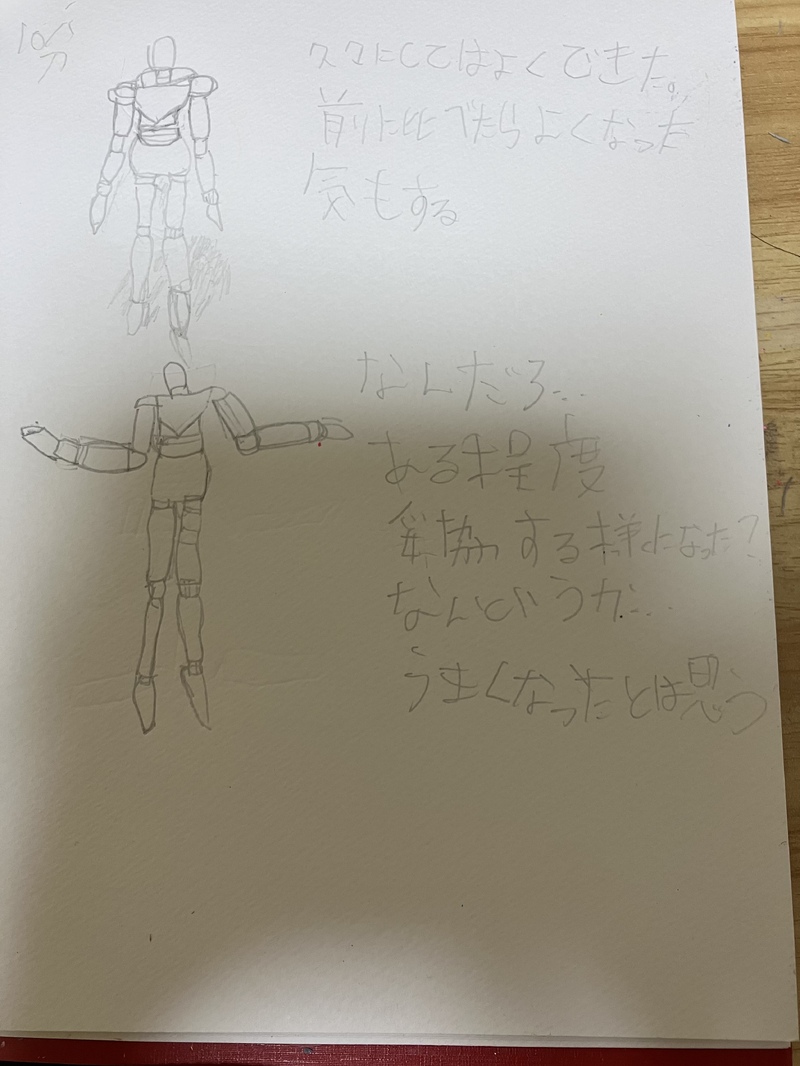 10分
久々にしてはよくできた。
前に比べたらよくなった
気もする
なんだろ…
ある程度
妥協する様になった?
なんというか…
うまくなったとは思う